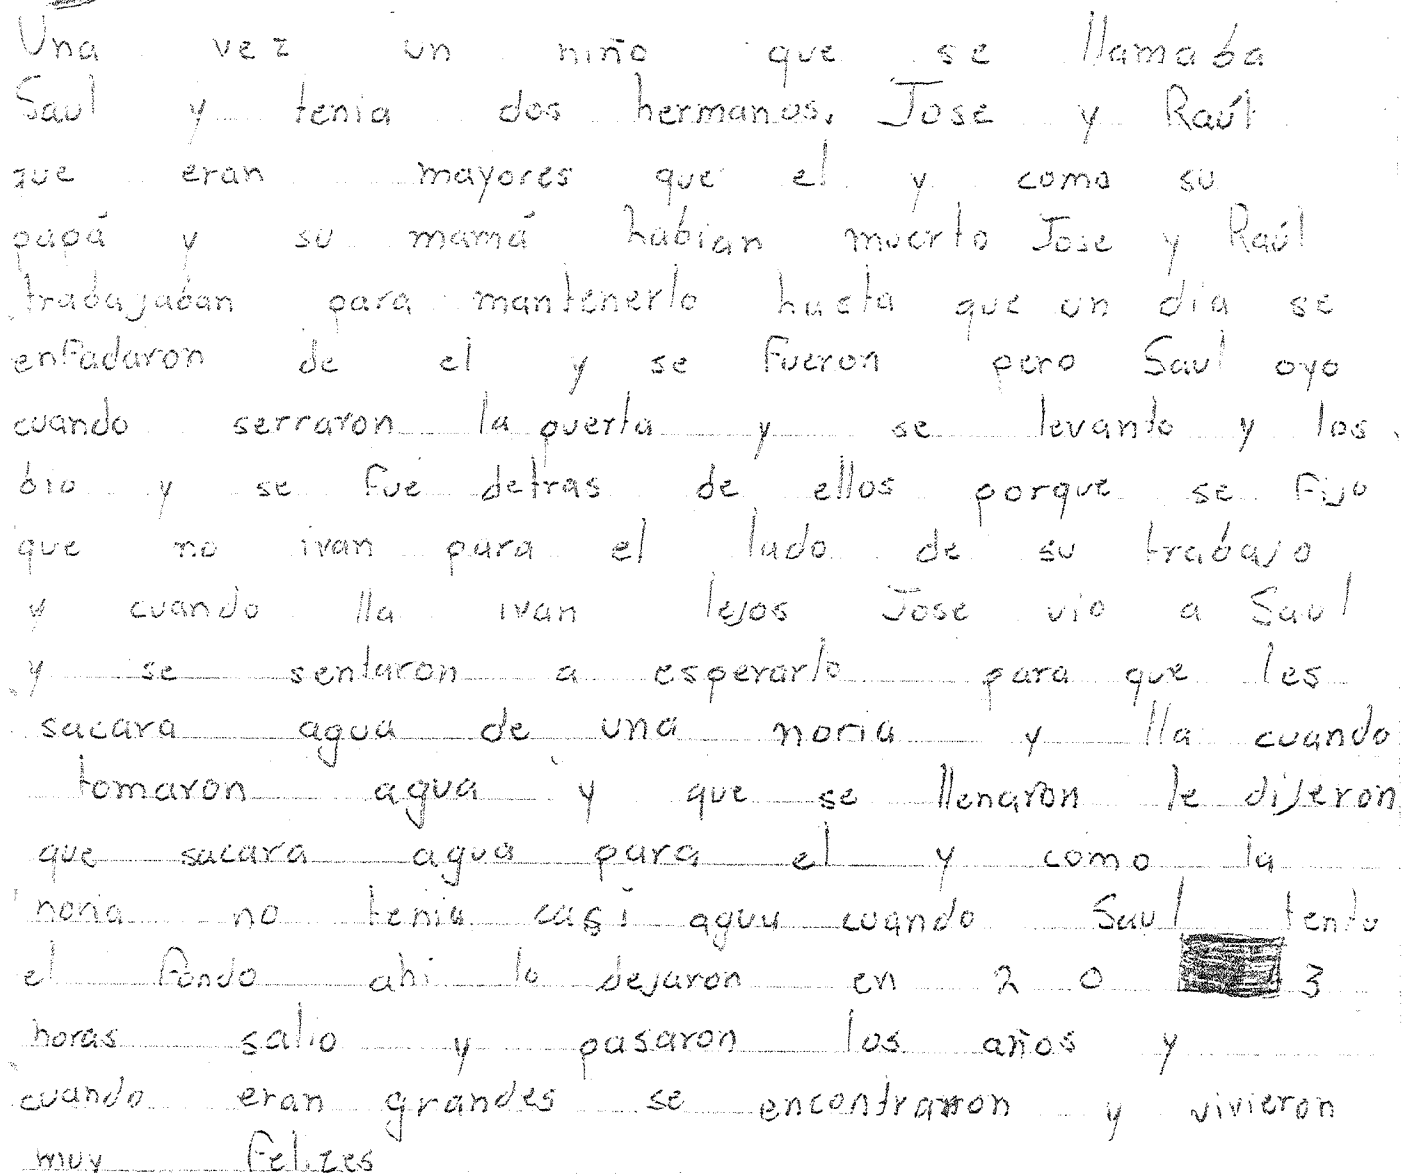 Una vez un niño que se llamaba
Saul y tenia dos hermanos. Jose y Raúl
que eran mayores que el y como su
papá y su mamá habian muerto Jose y Raúl
trabajaban para mantenerlo hasta que un dia se
enfadaron de el y se fueron pero Saul oyo
cuando serraron la puerta y se levanto y los
bio y se fue detras de ellos porque se fijo
que no ivan para el lado de su trabajo
y cuando lla ivan lejos Jose vio a Saul
y se sentaron a esperarlo para que les
sacara agua de una noria y lla cuando
tomaron agua y que se llenaron le dijeron
que sacara agua para el y como la
noria no tenia casi agua cuando Saul tento
el fondo ahi lo dejaron en 2 o 3
horas salio y pasaron los años y
cuando eran grandes se encontraron y vivieron
muy felizes